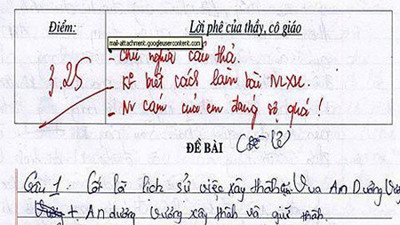 Điểm:
Lời phê của thầy, cô giáo
mail-attachment.googleusercontent.com
3.25
- Chữ nghĩa cẩu thả.
- K biết cách làm bài NLXH.
- Nv cảm của em đáng sợ quá!
ĐỀ BÀI
(Đề lẻ)
Câu 1. Cốt lõi lịch sử việc xây thành của Vua An Dương Vương
+ An dương vương xây thành và giữ thành.